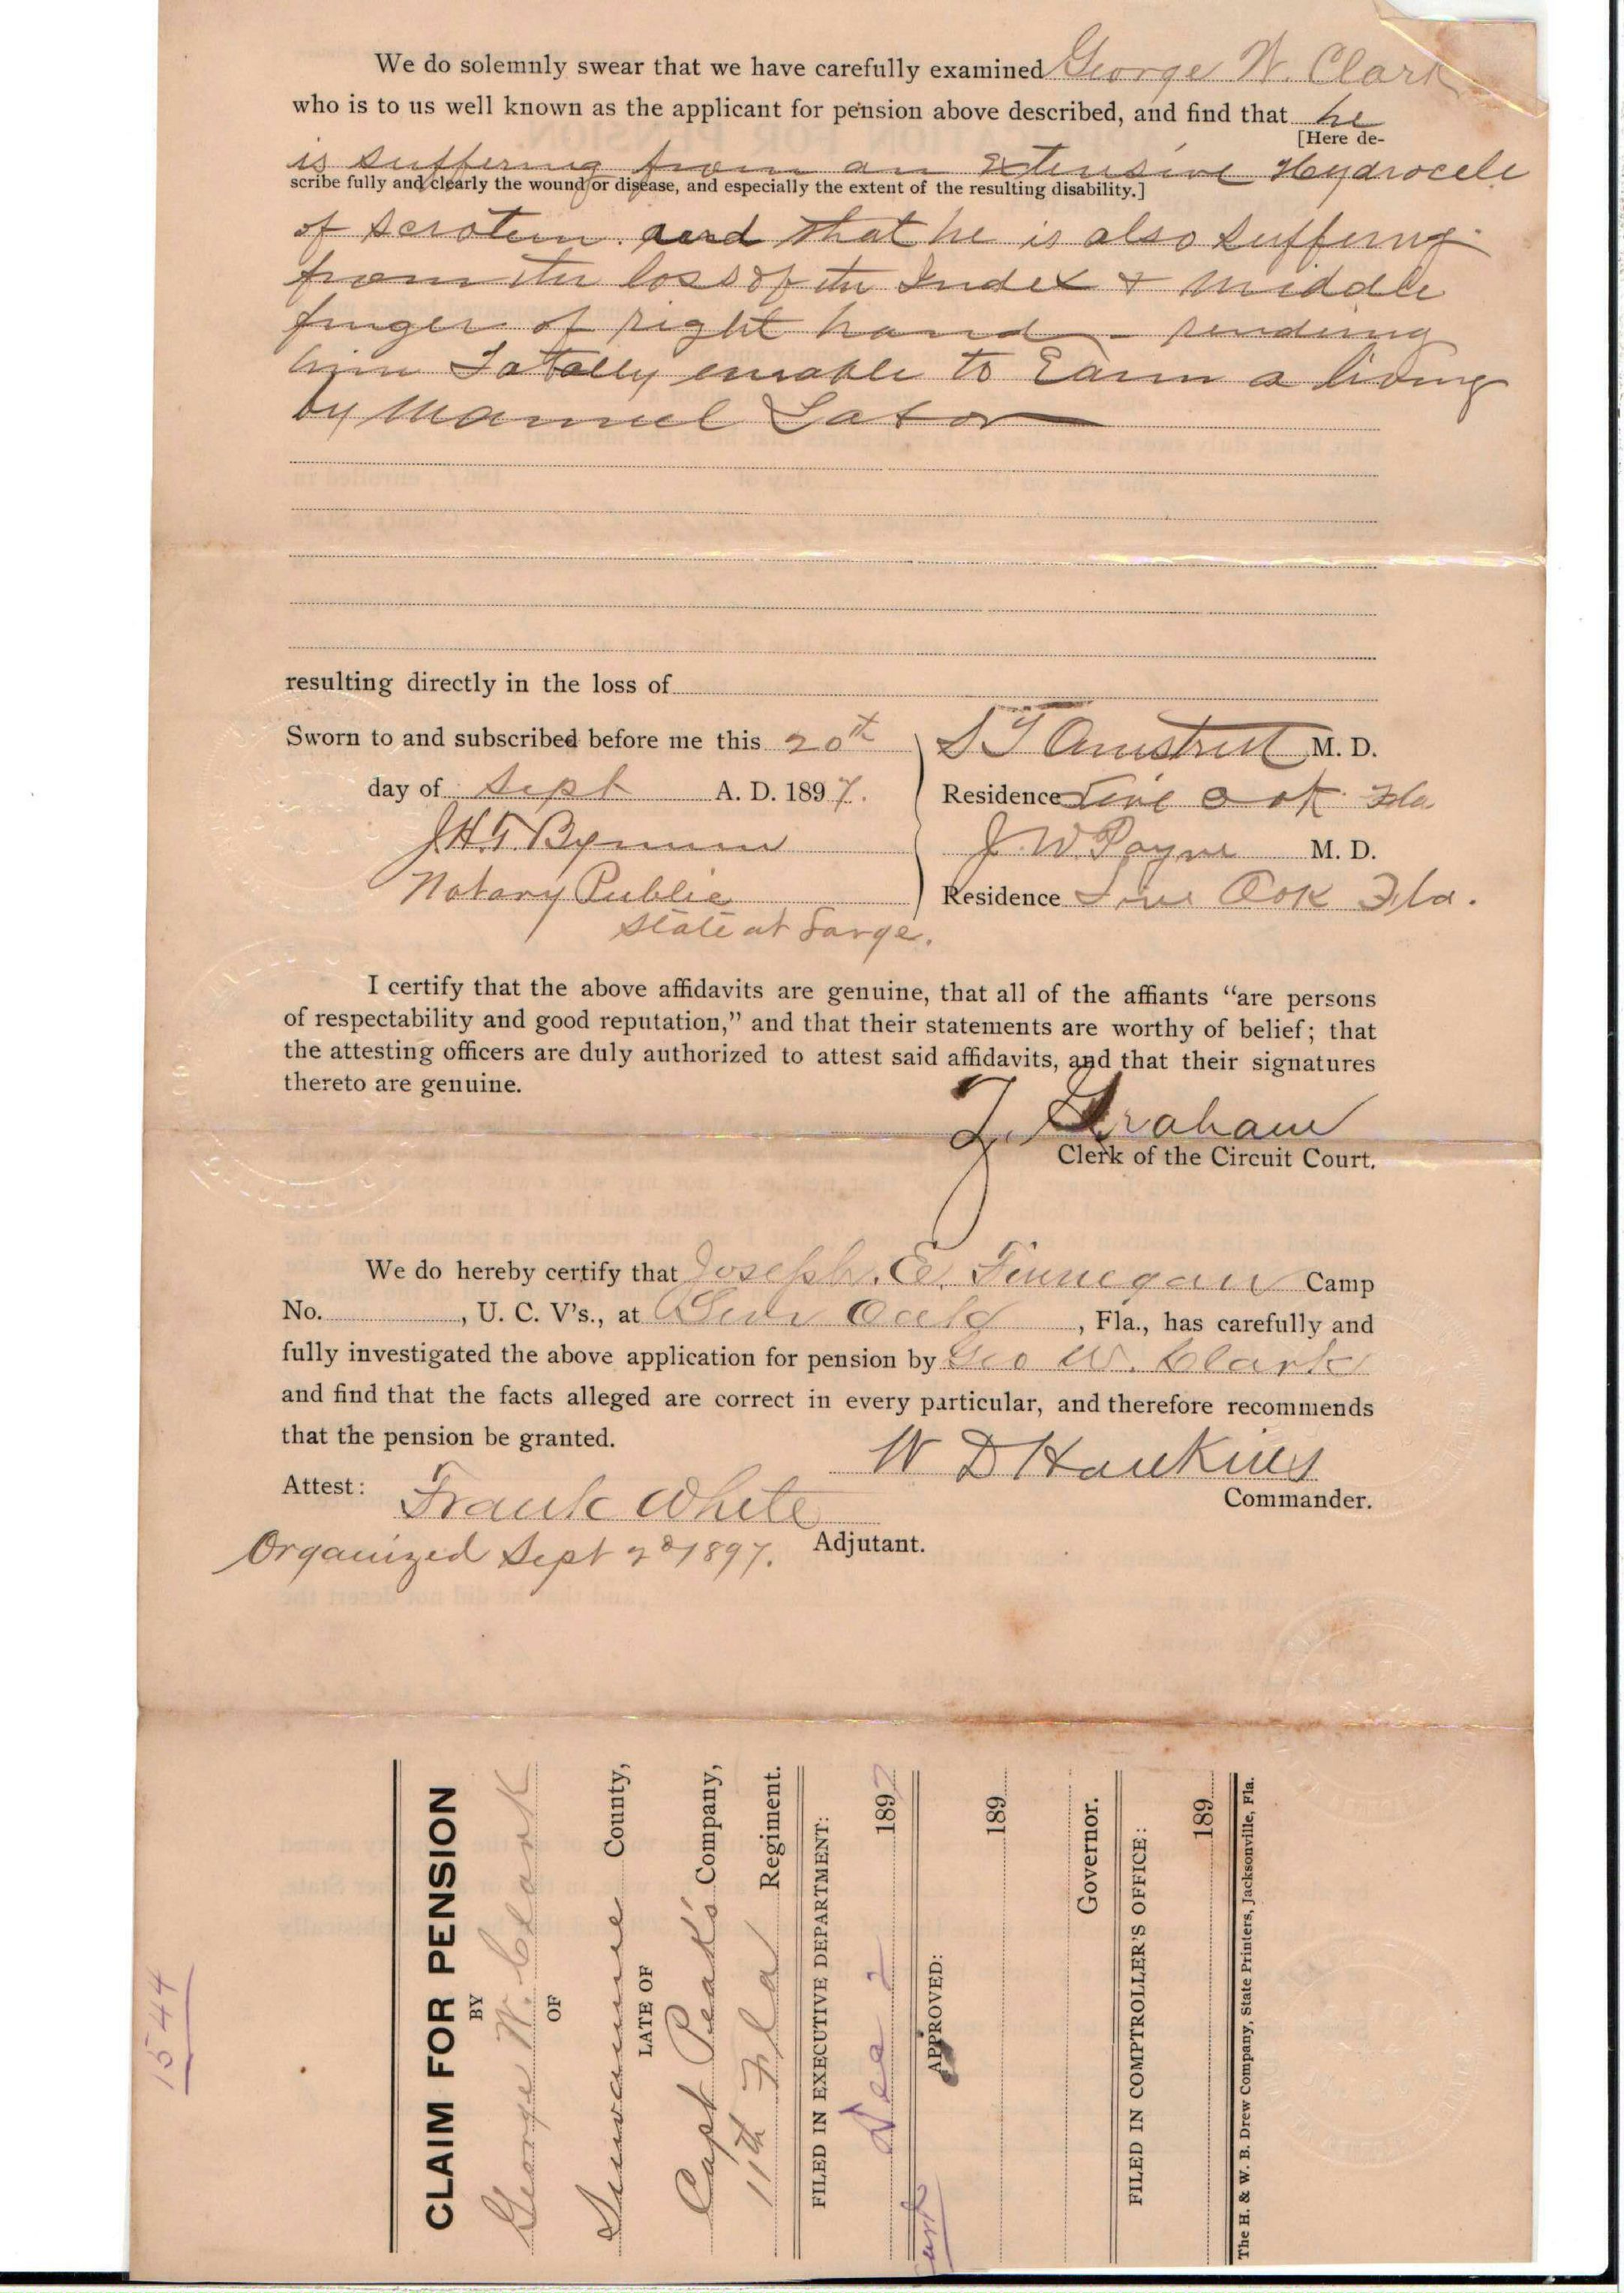 We do solemnly swear that we have carefully examined George W. Clark
who is to us well known as the applicant for pension above described, and find that he
[Here de-
is suffering from an Extensive Hydrocele
scribe fully and clearly the wound or disease, and especially the extent of the resulting disability.]
of scrotum. and that he is also suffering
from the loss of the Index & middle
finger of right hand - rendering
him Totally unable to Earn a living
by manuel Labor
resulting directly in the loss of
Sworn to and subscribed before me this 20th
day of Sept A. D. 1897.
J.H.T. Bynum
Notary Public
State at Large.
S T M. D.
Residence Live Oak Fla
J. W. Payne M. D.
Residence Live Oak Fla.
I certify that the above affidavits are genuine, that all of the affiants “are persons
of respectability and good reputation,” and that their statements are worthy of belief; that
the attesting officers are duly authorized to attest said affidavits, and that their signatures
thereto are genuine.
J. Graham
Clerk of the Circuit Court.
We do hereby certify that Joseph. E. Finnegan Camp
No. , U. C. V's., at Live Oak , Fla., has carefully and
fully investigated the above application for pension by Geo W. Clark
and find that the facts alleged are correct in every particular, and therefore recommends
that the pension be granted.
W D Hawkins
Commander.
Attest: Frank White
Adjutant.
Organized Sept 2d 1897.
1544
CLAIM FOR PENSION
BY
George W. Clark
OF
Suwannee County,
LATE OF
Capt Peak's Company,
11th Fla Regiment.
FILED IN EXECUTIVE DEPARTMENT:
Dec 2 1897
APPROVED:
189
Governor.
FILED IN COMPTROLLER'S OFFICE:
189
The H. & W. B. Drew Company, State Printers, Jacksonville, Fla.